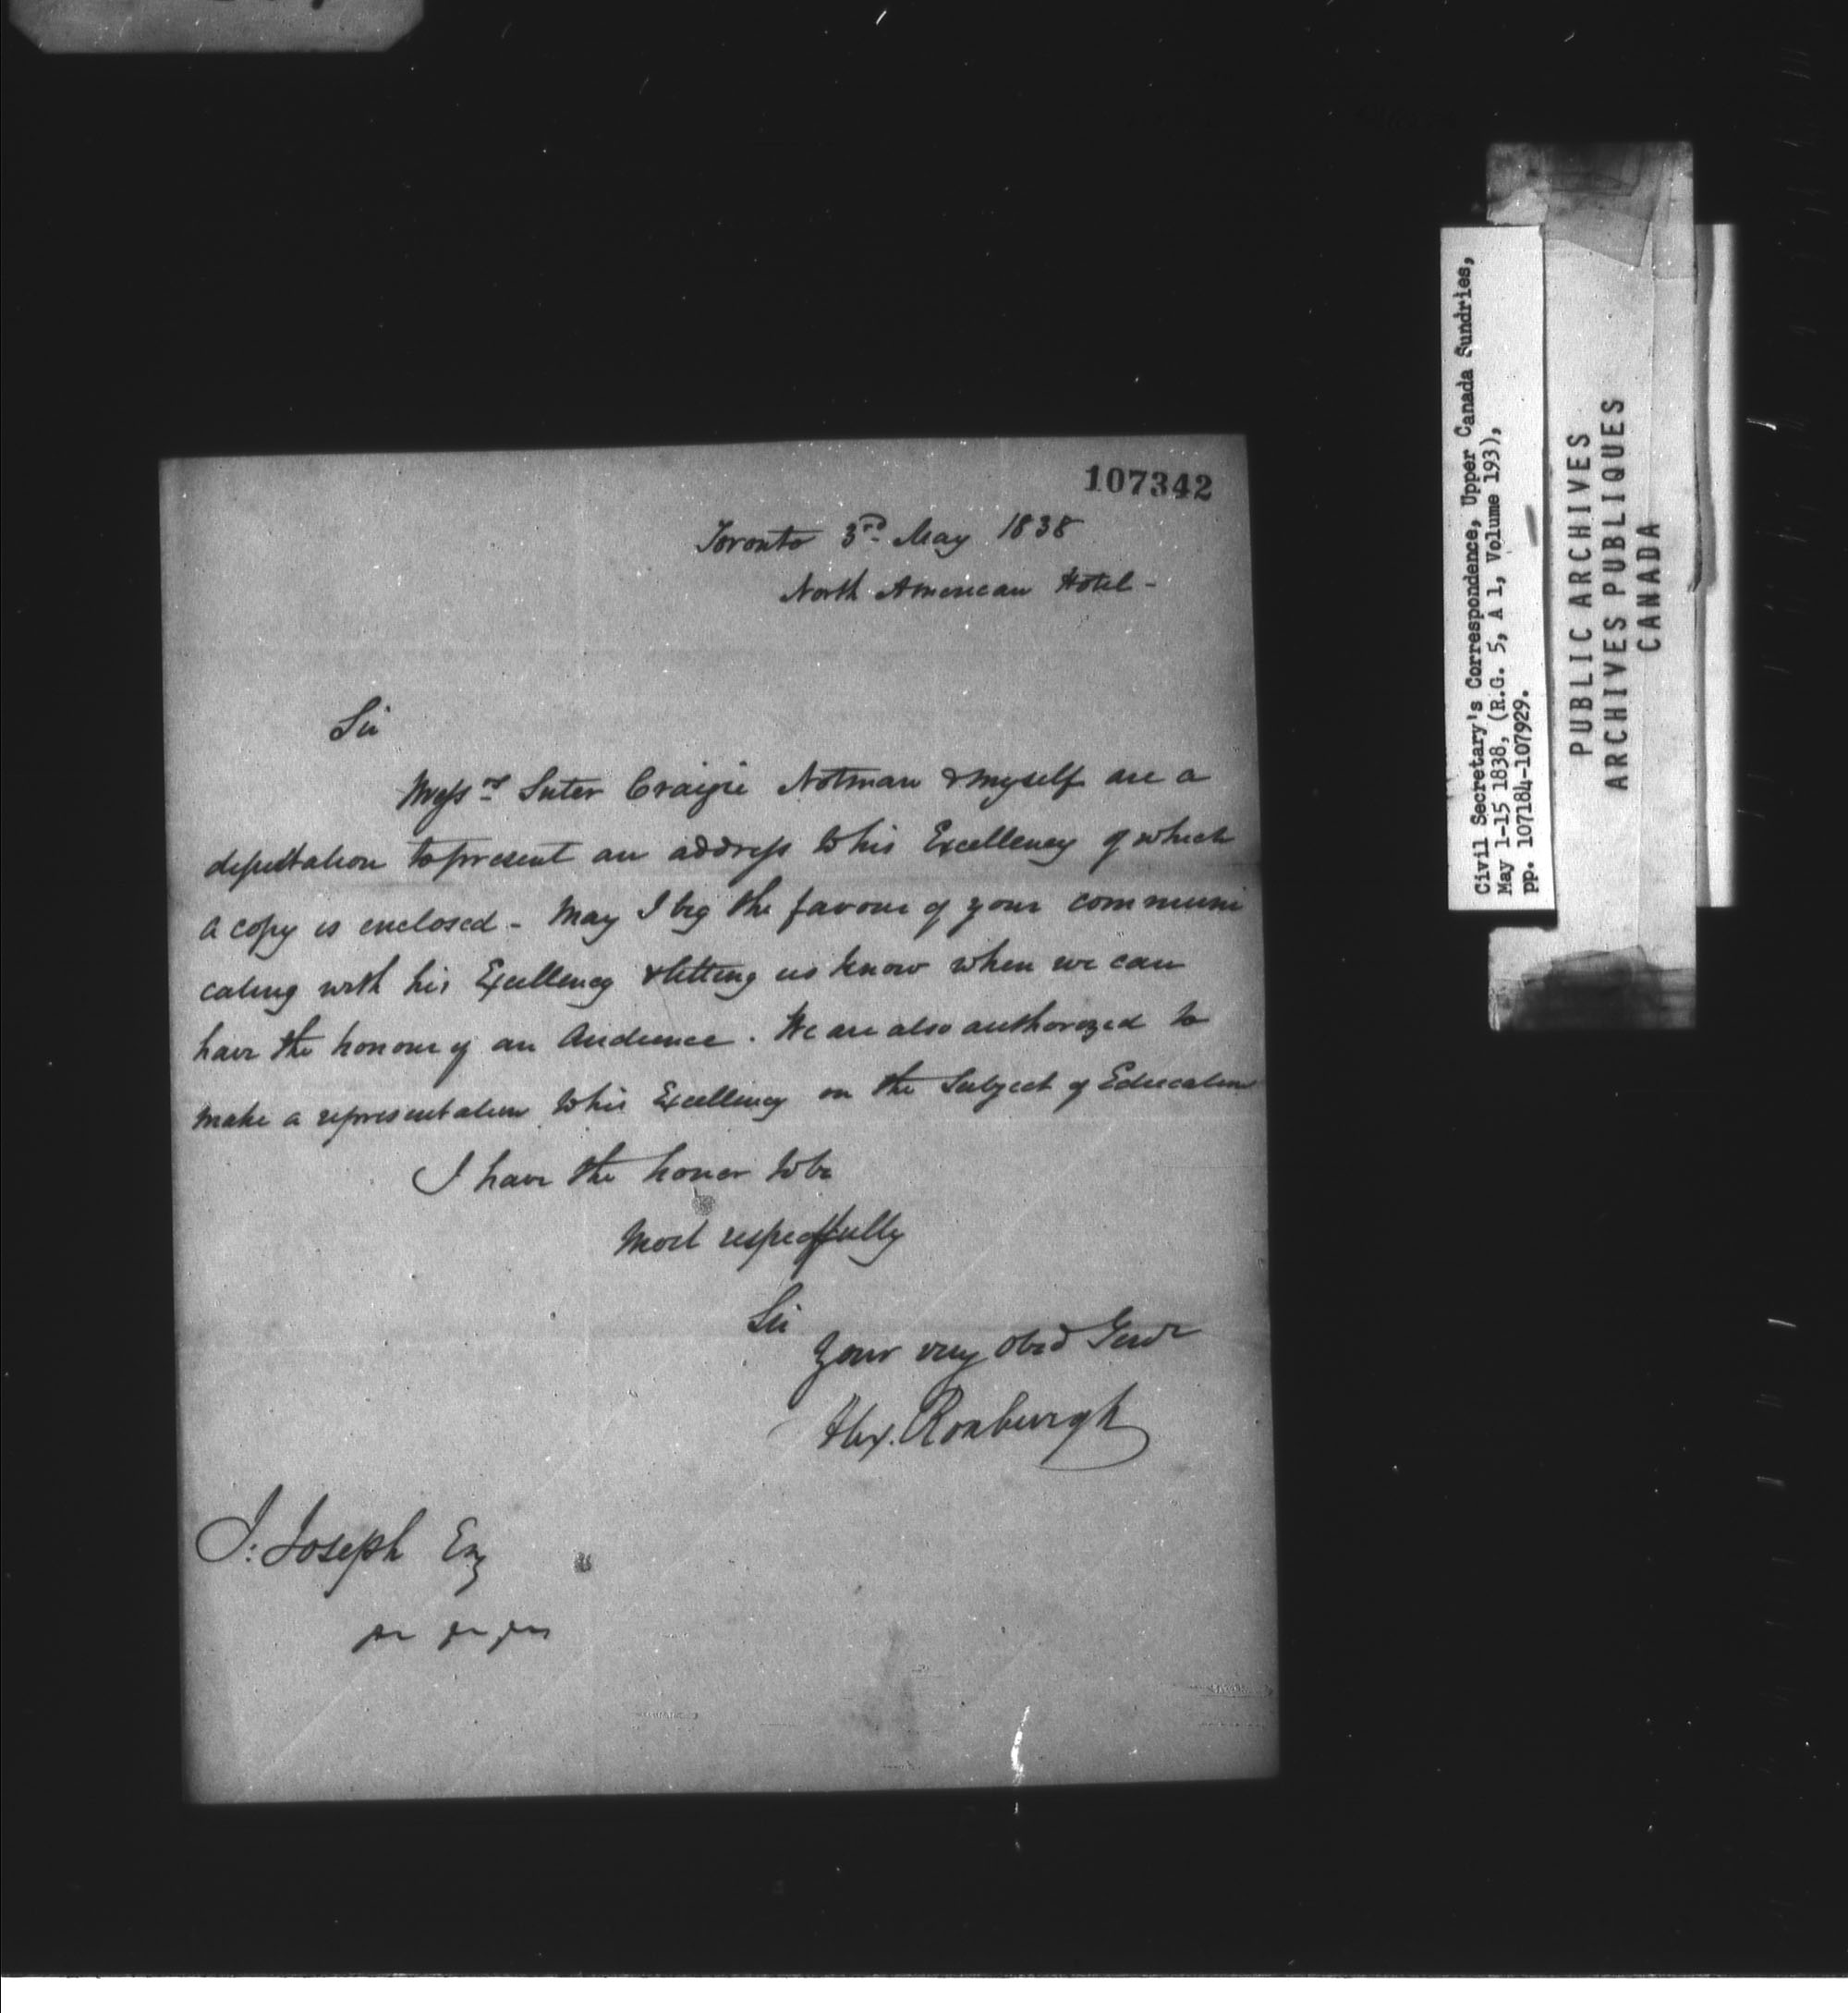 107342
Toronto 3rd May 1838
North American Hotel -
Sir
Messrs Suter Craigie Notman & myself are a
deputation to present an address to his Excellency of which
a copy is enclosed - May I beg the favour of your communi
cating with his Excellency & letting us know when we can
have the honour of an Audience. We are also authorized to
make a representation to his Excellency on the Subject of Education
I have the honor to be
Most respectfully
Sir
Your very obed Servt
Alex. Roxburgh
J: Joseph Esq
Civil Secretary's Correspondence, Upper Canada Sundries,
May 1-15 1838, (R.G. 5, A 1, Volume 193),
pp. 107184-107929.
PUBLIC ARCHIVES
ARCHIVES PUBLIQUES
CANADA